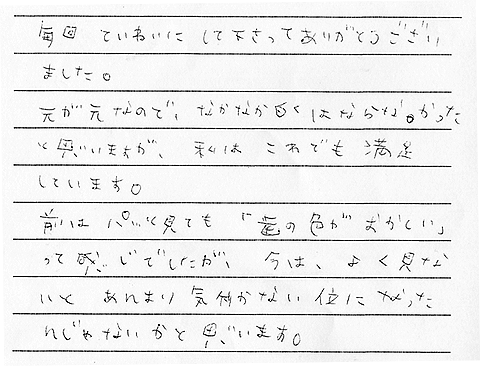 毎回 ていねいに して下さってありがとうござい
ました。
元が元なので、なかなか白くはならなかった
と思いますが、私は これでも 満足
しています。
前は パッと見ても 「歯の色が おかしい」
って感じでしたが、 今は、よく見な
いと あんまり 気付かない位に なった
んじゃないかと 思います。